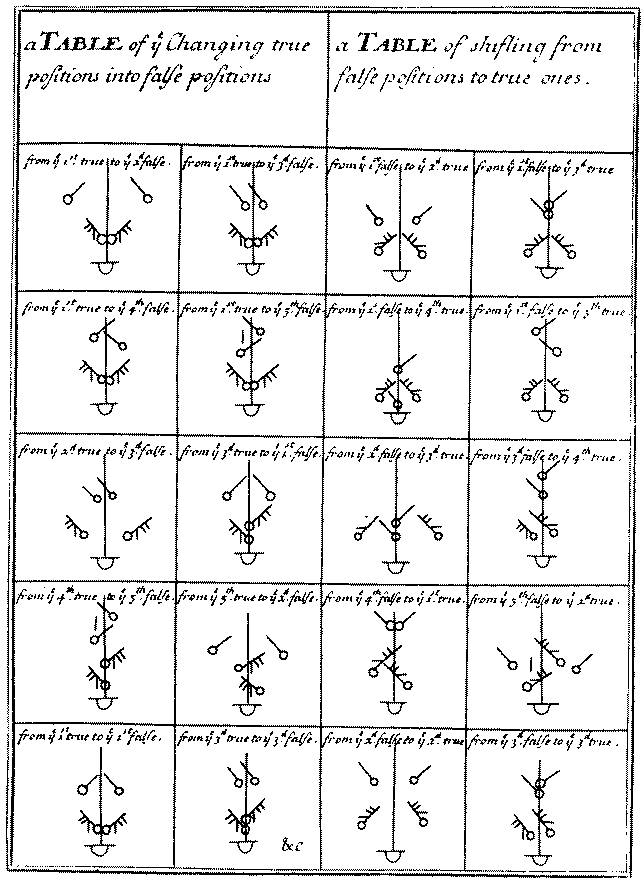 a TABLE of yͤ Changing true
poſitions into falſe poſitions
a TABLE of shifting from
falſe poſitions to true ones.
from yͤ 1st true to yͤ 2d falſe.
from yͤ 1st true to yͤ 3d falſe.
from yͤ 1st falſe to yͤ 2d true
from yͤ 1st falſe to yͤ 3d true
from yͤ 1st true to yͤ 4th falſe.
from yͤ 1st true to yͤ 5th falſe.
from yͤ 1st falſe to yͤ 4th true.
from yͤ 1st falſe to yͤ 5th true.
from yͤ 2d true to yͤ 3d falſe.
from yͤ 3d true to yͤ 1st falſe.
from yͤ 2d falſe to yͤ 3d true.
from yͤ 3d falſe to yͤ 4th true.
from yͤ 4th true to yͤ 5th falſe.
from yͤ 5th true to yͤ 2d falſe.
from yͤ 4th falſe to yͤ 1st true.
from yͤ 5th falſe to yͤ 2d true.
from yͤ 1st true to yͤ 1st falſe.
from yͤ 3d true to yͤ 3d falſe.
from yͤ 2d falſe to yͤ 2d true
from yͤ 3d falſe to yͤ 3d true.
&c